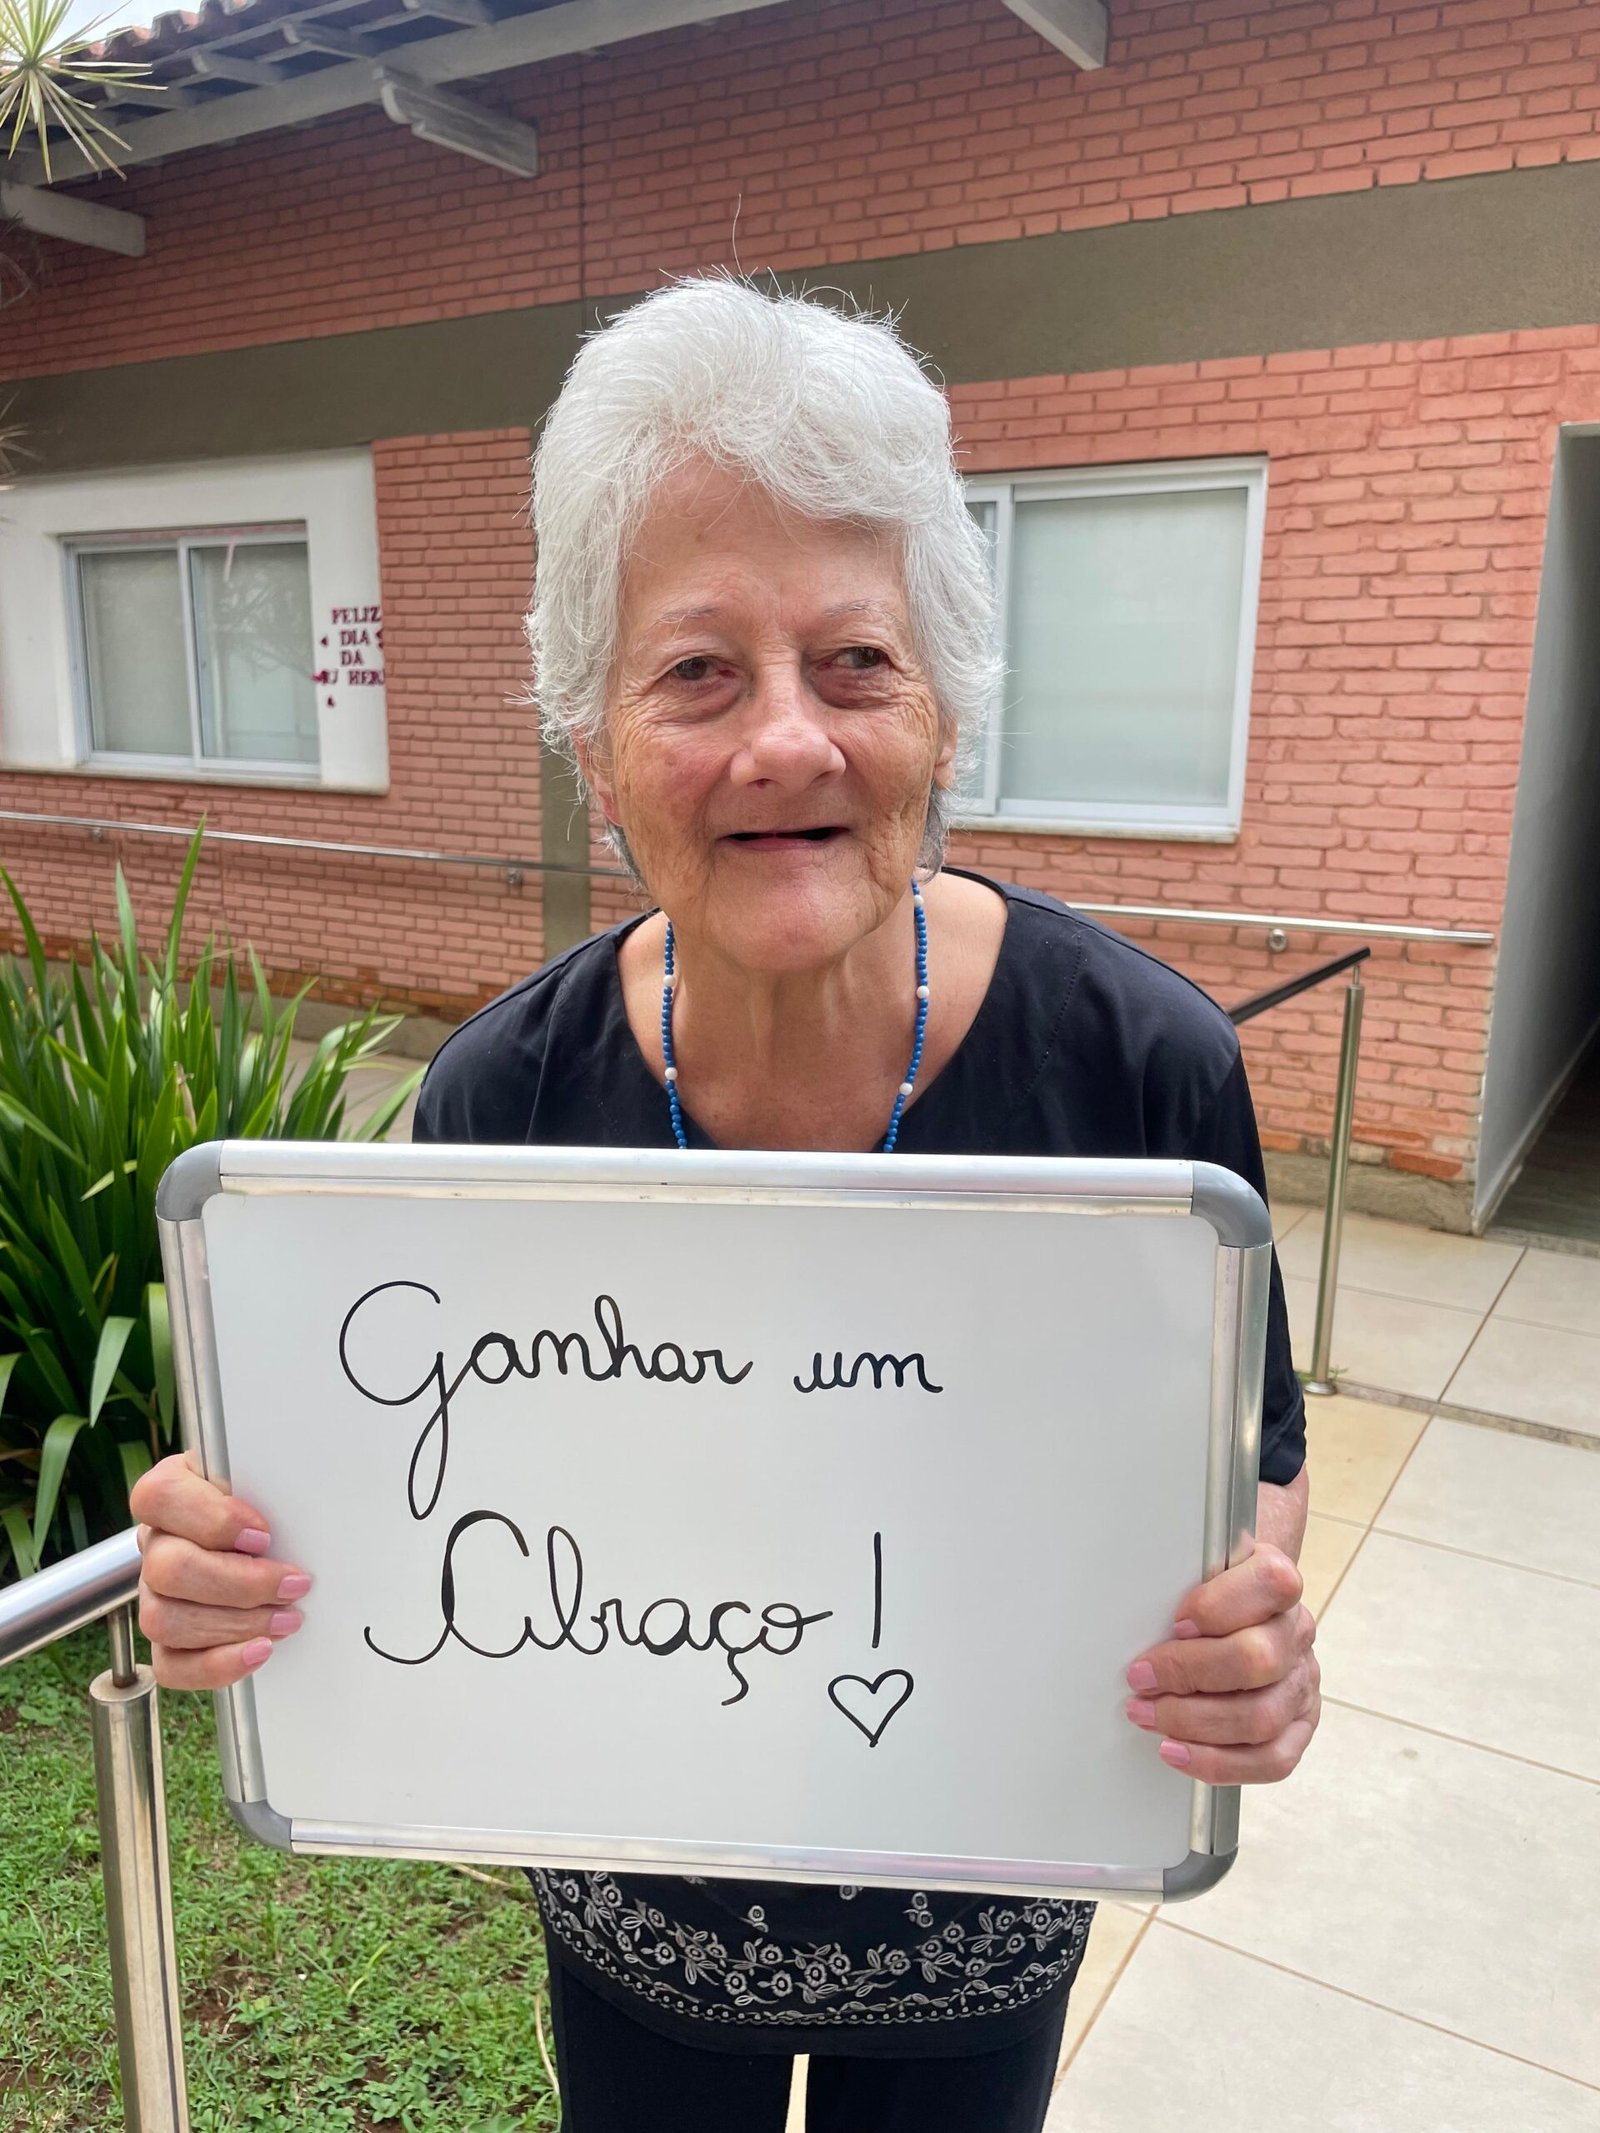 FELIZ
DIA
DA
Ganhar um
Abraço!